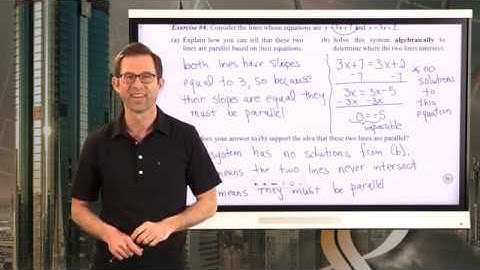 Exercise #4. Consider the lines whose equations are y = 3x + 7 and y = 3x + 2.
(a) Explain how you can tell that these two
lines are parallel based on their equations.
both lines have slopes
equal to 3, so because
their slopes are equal they
must be parallel
(b) Solve this system algebraically to
determine where the two lines intersect.
3x+7 = 3x+2
-7 -7
3x = 3x-5
-3x -3x
0 = -5
impossible
no
solutions
to
this
equation
does your answer to (b) support the idea that these two lines are parallel?
system has no solutions from (b),
means the two lines never intersect
means "they" must be parallel